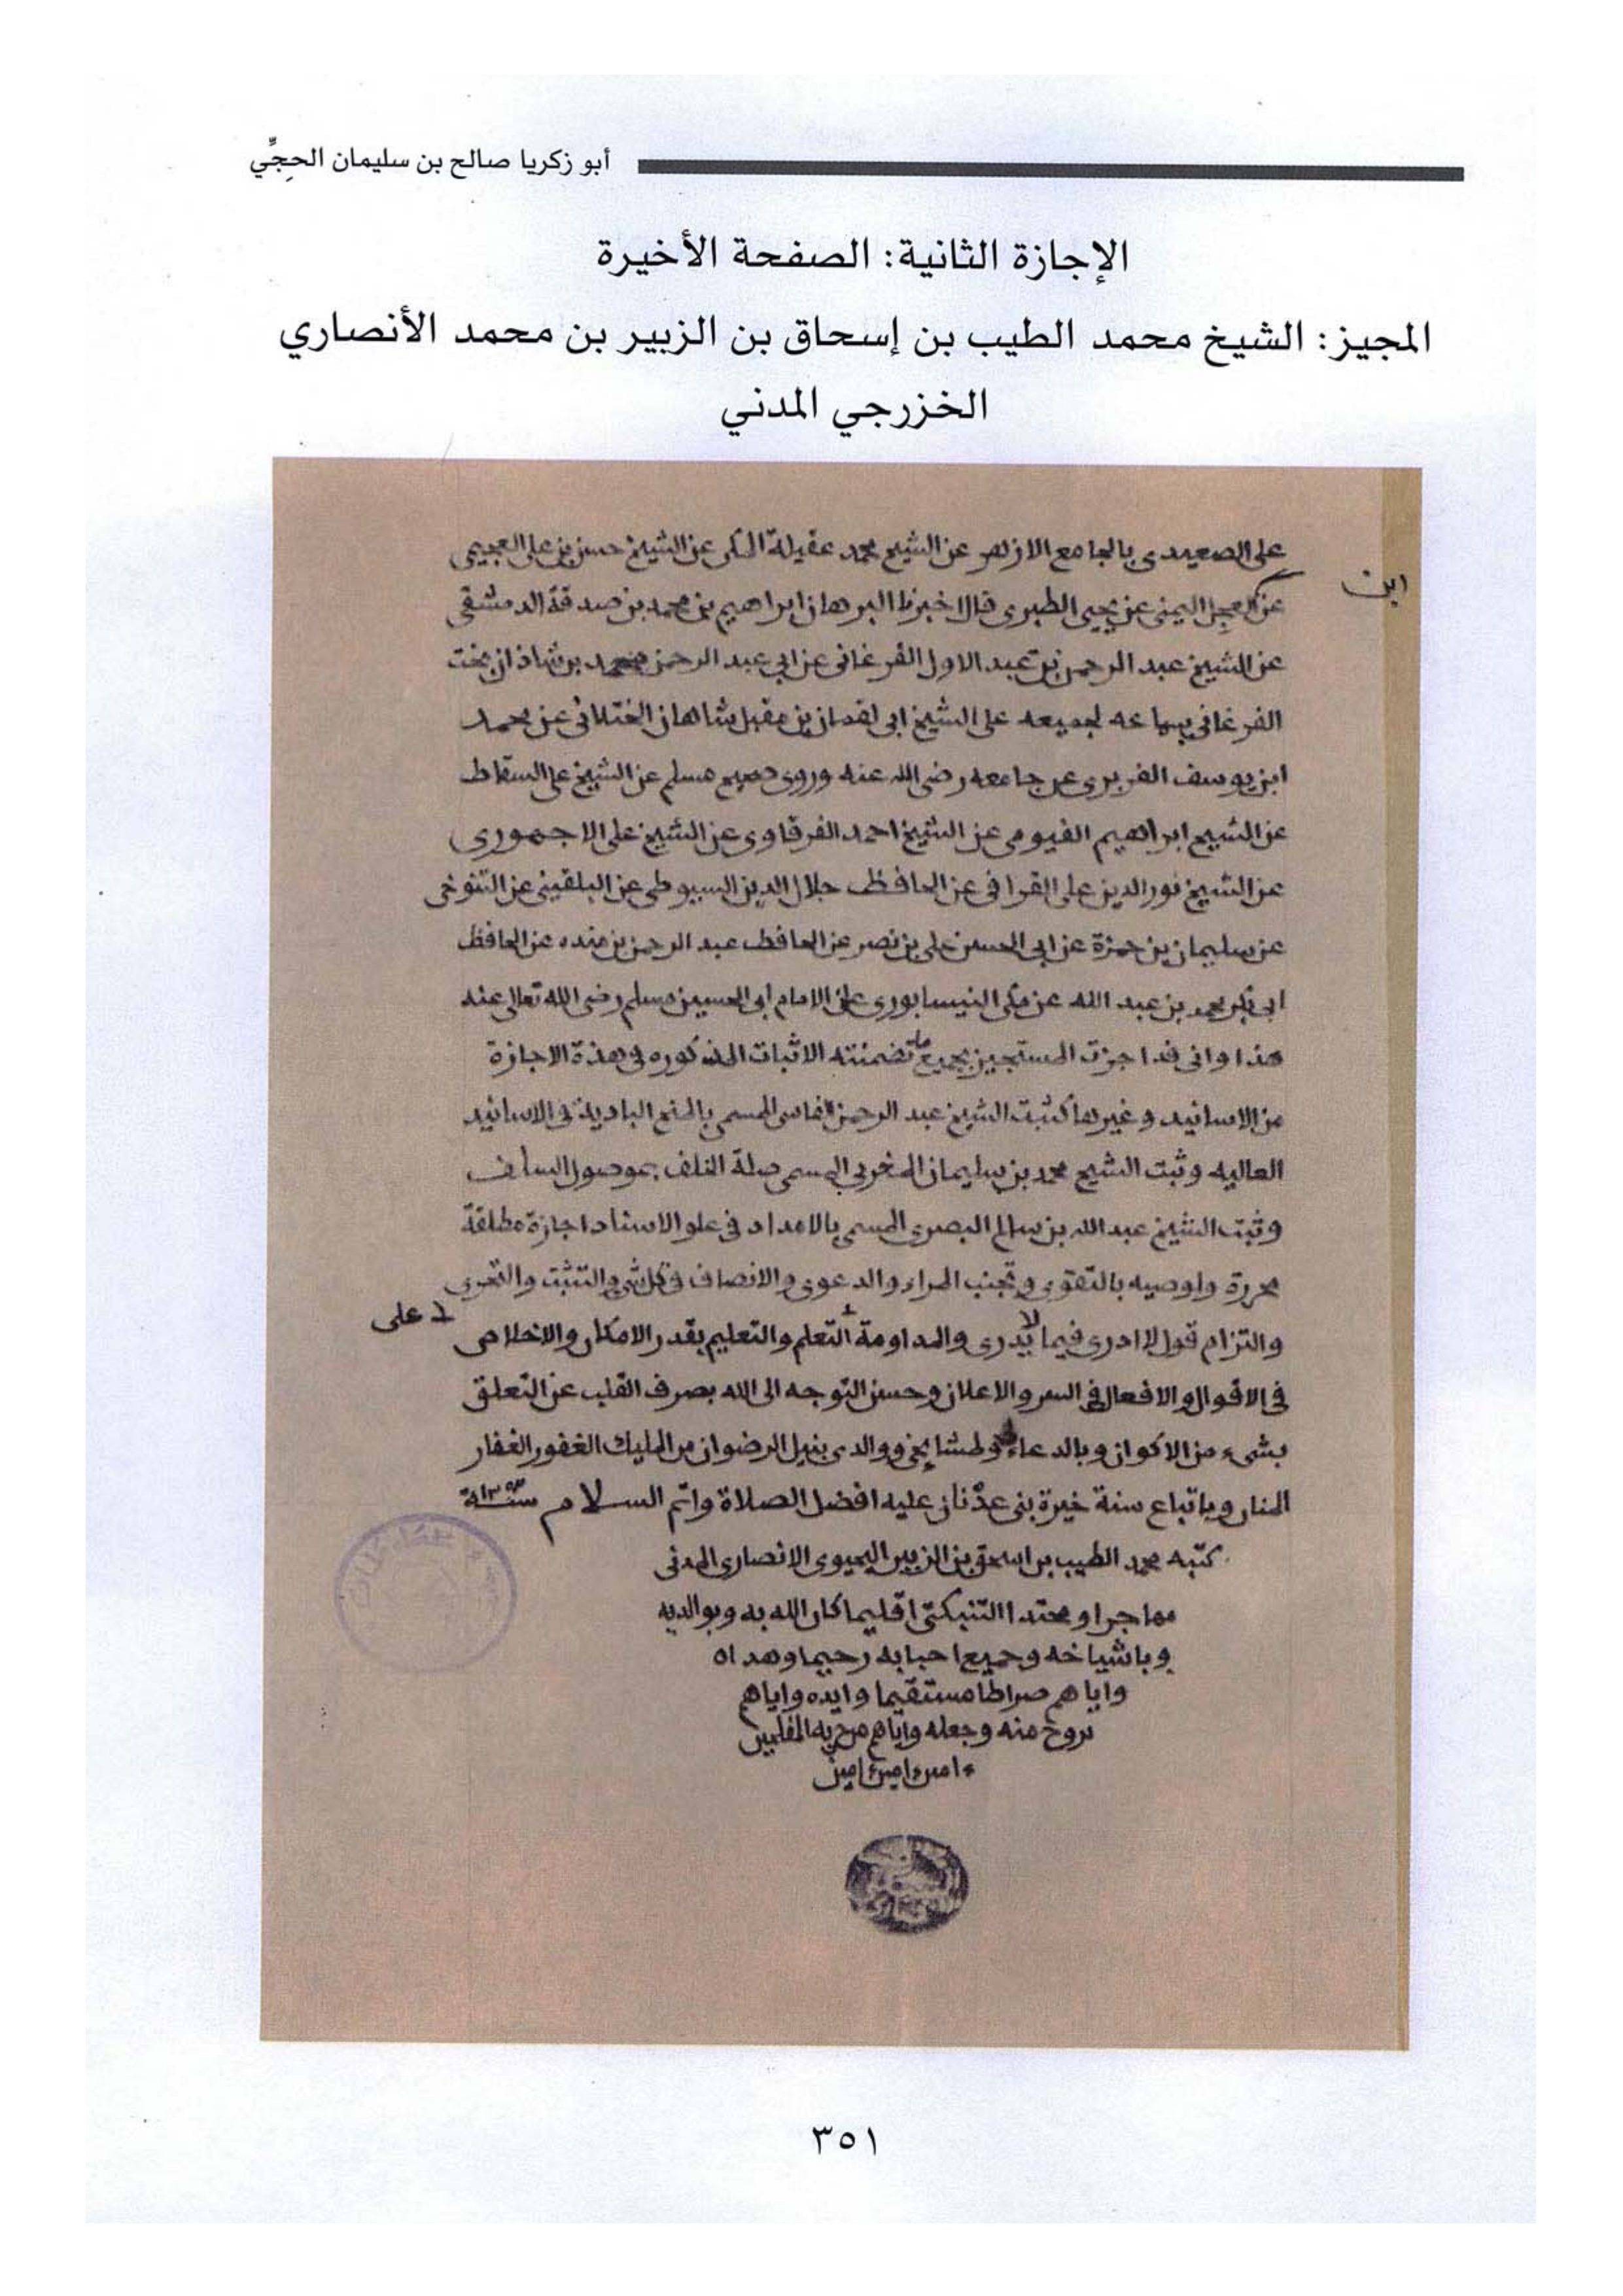 أبو زكريا صالح بن سليمان الحجِّي
الإجازة الثانية: الصفحة الأخيرة
المجيز: الشيخ محمد الطيب بن إسحاق بن الزبير بن محمد الأنصاري
الخزرجي المدني
على الصعيدى بالجامع الازهر عن الشيخ محمد عقيلة المكى عن الشيخ حسن بن على العجيمى
ابن
عن العجل اليمنى عن يحيى الطبرى قال اخبرنا البرهان ابراهيم بن محمد بن صدقة الدمشقى
عن الشيخ عبد الرحمن بن عبد الاول الفرغانى عن ابى عبد الرحمن محمد بن شاذان بخت
الفرغانى بسماعه لجميعه على الشيخ ابى لقمان بن مقبل شاهان الختلانى عن محمد
ابن يوسف الفربرى عن جامعه رضى الله عنه وروى صحيح مسلم عن الشيخ على السقاط
عن الشيخ ابراهيم الفيومى عن الشيخ احمد الفرقاوى عن الشيخ على الاجهورى
عن الشيخ نور الدين على القرافى عن الحافظ جلال الدين السيوطى عن البلقينى عن التنوخى
عن سليمان بن حمزة عن ابى الحسن على بن نصر عن الحافظ عبد الرحمن بن منده عن الحافظ
ابى بكر محمد بن عبد الله عن مكى النيسابورى عن الامام ابى الحسين مسلم رضى الله تعالى عنه
هذا وانى قد اجزت المستجيز بجميع ما تضمنته الاثبات المذكوره فى هذة الاجازة
من الاسانيد وغيرها كثبت الشيخ عبد الرحمن الفاسى المسمى بالمنح البادية فى الاسانيد
العاليه وثبت الشيخ محمد بن سليمان المغربى المسمى صلة الخلف بموصول السلف
وثبت الشيخ عبد الله بن سالم البصرى المسمى بالامداد فى علو الاسناد اجازة مطلقة
محررة واوصيه بالتقوى وتجنب المراء والدعوى والانصاف فى كل شىء والتثبت والتحرى
والتزام قول لا ادرى فيما لا يدرى والمداومة التعلم والتعليم بقدر الامكان والاخلاص
على
فى الاقوال والافعال فى السر والاعلان وحسن التوجه الى الله بصرف القلب عن التعلق
بشىء من الاكوان وبالدعاء ولمشايخى ووالدى بنيل الرضوان من المليك الغفور الغفار
المنان وباتباع سنة خيرة بنى عدنان عليه افضل الصلاة واتم السلام سنة
كتبه محمد الطيب بن اسحق بن الزبير اليحيوى الانصارى المدنى
مهاجرا ومحتدا التنبكتى اقليما كان الله به وبوالديه
وباشياخه وجميع احبابه رحيما وهداه
واياهم صراطا مستقيما وايده واياهم
بروح منه وجعله واياهم من حزبه المفلحين
امين امين امين
٣٥١